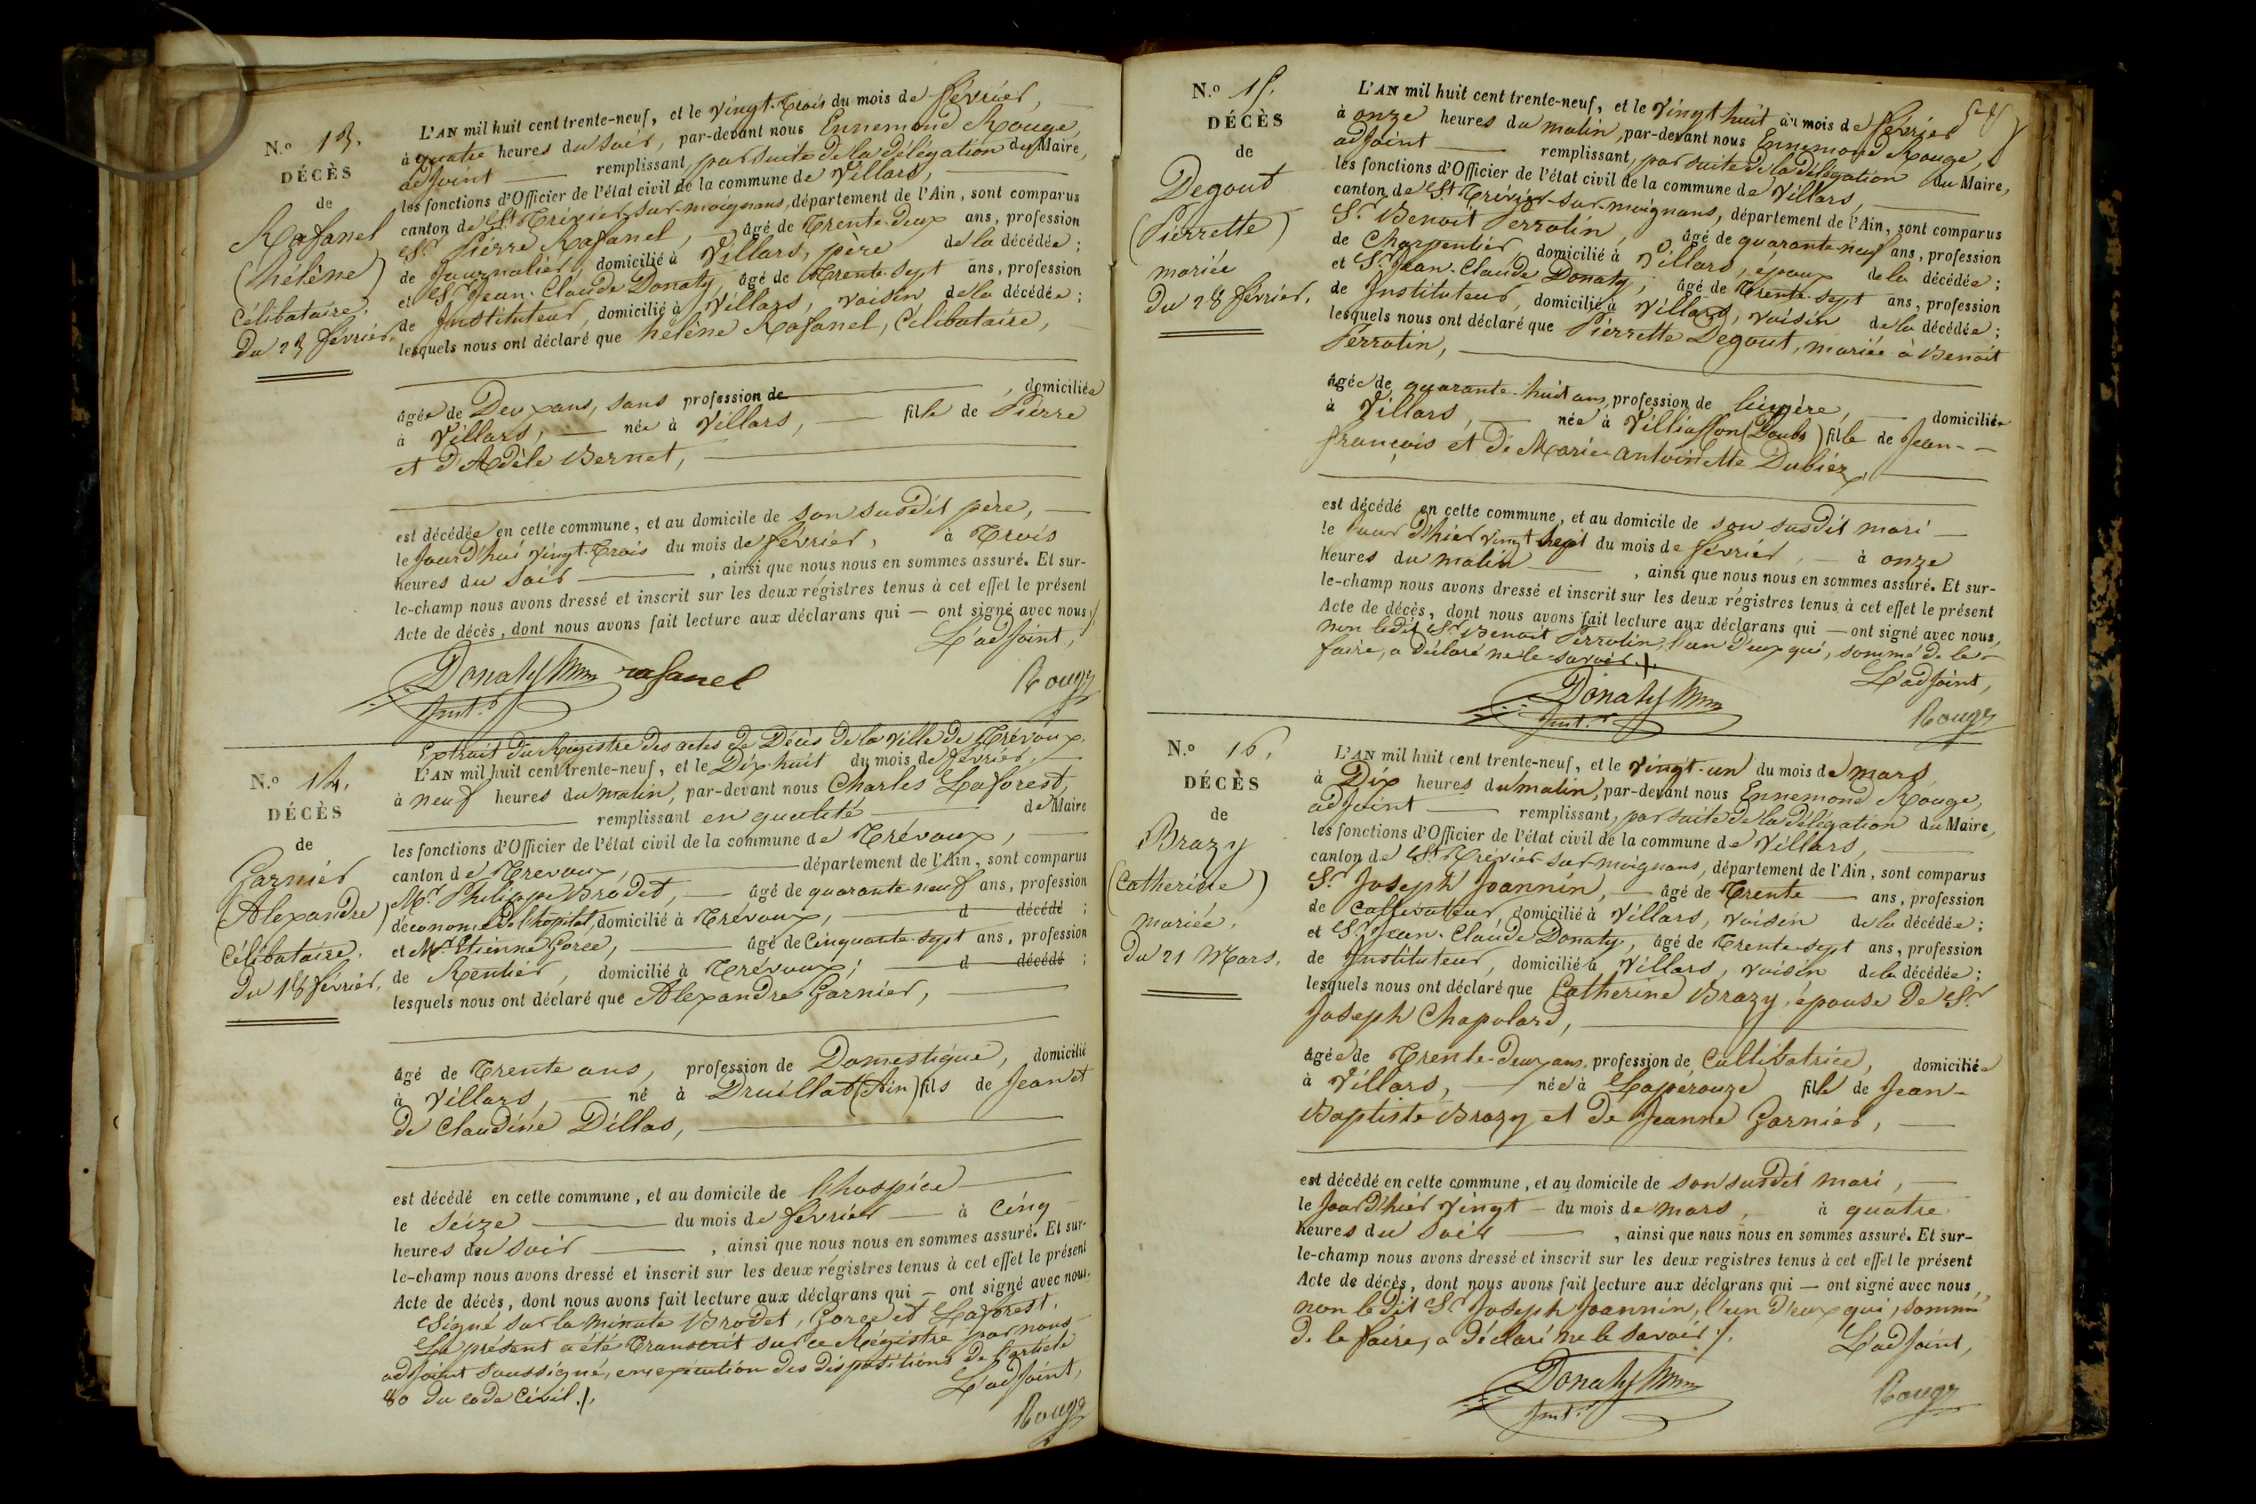 N.º 13.
DÉCÈS
de
Rafanel
(hélène)
Célibataire.
Du 23 février.
L'AN mil huit cent trente-neuf, et le vingt-Trois du mois de février,
à quatre heures du soir, par-devant nous Ennemond Rouge,
adjoint remplissant, par suite de la délégation du Maire,
les fonctions d'Officier de l'état civil de la commune de Villars,
canton de St Trévier-sur-moignans, département de l'Ain, sont comparus
Sr. Pierre Rafanel, âgé de Trente-deux ans, profession
de Journalier, domicilié à Villars, père de la décédée;
et Sr. Jean-Claude Donaty, âgé de Trente-sept ans, profession
de Instituteur, domicilié à Villars, voisin de la décédée;
lesquels nous ont déclaré que hélène Rafanel, Célibataire,
âgée de Deux ans, sans profession de , domiciliée
à Villars, née à Villars, fille de Pierre
et d'Adèle Bernet,
est décédée en cette commune, et au domicile de son susdit père,
le Jourd'hui vingt-Trois du mois de février, à Trois
heures du soir , ainsi que nous nous en sommes assuré. Et sur-
le-champ nous avons dressé et inscrit sur les deux régistres tenus à cet effet le présent
Acte de décès, dont nous avons fait lecture aux déclarans qui — ont signé avec nous./.
L'adjoint,
Donaty rafanel Rouge
Inst.r
N.º 14.
DÉCÈS
de
Garnier
(Alexandre)
Célibataire.
Du 18 février.
Extrait du Régistre des actes de Décès de la ville de Trévoux.
L'AN mil huit cent trente-neuf, et le Dix huit du mois de février,
à neuf heures du matin, par-devant nous Charles Laforest,
remplissant en qualité de Maire
les fonctions d'Officier de l'état civil de la commune de Trévoux,
canton de Trevoux, département de l'Ain, sont comparus
Mr. Philippe Brodet, âgé de quarante-neuf ans, profession
d'econome de l'hopital, domicilié à Trévoux, d décédé ;
et Mr. Etienne Goree, âgé de Cinquante-sept ans, profession
de Rentier, domicilié à Trévoux; d décédé ;
lesquels nous ont déclaré que Alexandre Garnier,
âgé de Trente ans, profession de Domestique, domicilié
à Villars, né à Druillat (Ain) fils de Jean et
de Claudine Dillas,
est décédé en cette commune, et au domicile de l'hospice
le seize du mois de février à Cinq
heures du soir , ainsi que nous nous en sommes assuré. Et sur-
le-champ nous avons dressé et inscrit sur les deux régistres tenus à cet effet le présent
Acte de décès, dont nous avons fait lecture aux déclarans qui — ont signé avec nous.
Signé sur la minute Brodet, Goree et Laforest.
Le présent a été Transcrit sur ce Régistre par nous
adjoint soussigné, en exécution des dispositions de l'article
80 du code civil./.
L'adjoint,
Rouge
N.º 15.
DÉCÈS
de
Degout
(Pierrette)
mariée
Du 28 février.
L'AN mil huit cent trente-neuf, et le vingt huit du mois de février
à onze heures du matin, par-devant nous Ennemond Rouge,
adjoint remplissant, par suite de la délégation du Maire,
les fonctions d'Officier de l'état civil de la commune de Villars,
canton de St Trévier-sur-moignans, département de l'Ain, sont comparus
Sr. Benoit Perrotin, âgé de quarante-neuf ans, profession
de Charpentier domicilié à Villars, époux de la décédée;
et Sr. Jean-Claude Donaty, âgé de Trente-sept ans, profession
de Instituteur, domicilié à Villars, voisin de la décédée;
lesquels nous ont déclaré que Pierrette Degout, mariée à Benoit
Perrotin,
âgée de quarante-huit ans, profession de lingére, domiciliée
à Villars, née à Villiasson (Doubs) fille de Jean-
françois et de Marie-antoinette Dubiez,
est décédé en cette commune, et au domicile de son susdit mari
le Jour d'hier vingt sept du mois de février, à onze
heures du matin , ainsi que nous nous en sommes assuré. Et sur-
le-champ nous avons dressé et inscrit sur les deux régistres tenus à cet effet le présent
Acte de décès, dont nous avons fait lecture aux déclarans qui — ont signé avec nous,
non ledit Sr. Benoit Perrotin, l'un d'eux qui, sommé de le
faire, a déclaré ne le savoir./.
L'adjoint,
Donaty Rouge
Inst.r
N.º 16.
DÉCÈS
de
Brazy
(Catherine)
mariée.
Du 21 Mars.
L'AN mil huit cent trente-neuf, et le vingt-un du mois de mars
à Dix heures du matin, par-devant nous Ennemond Rouge,
adjoint remplissant, par suite de la délégation du Maire,
les fonctions d'Officier de l'état civil de la commune de Villars,
canton de St Trévier-sur-moignans, département de l'Ain, sont comparus
Sr. Joseph Joannin, âgé de Trente ans, profession
de Cultivateur, domicilié à Villars, voisin de la décédée;
et Sr. Jean-Claude Donaty, âgé de Trente-sept ans, profession
de Instituteur, domicilié à Villars, voisin de la décédée;
lesquels nous ont déclaré que Catherine Brazy, épouse de Sr.
Joseph Chapolard,
âgée de Trente-Deux ans, profession de Cultivatrice, domiciliée
à Villars, née à Lapérouze fille de Jean-
Baptiste Brazy et de Jeanne Garnier,
est décédé en cette commune, et au domicile de son susdit mari,
le Jour d'hier vingt — du mois de mars, à quatre
heures du soir , ainsi que nous nous en sommes assuré. Et sur-
le-champ nous avons dressé et inscrit sur les deux registres tenus à cet effet le présent
Acte de décès, dont nous avons fait lecture aux déclarans qui — ont signé avec nous,
non ledit Sr. Joseph Joannin, l'un d'eux qui, sommé
de le faire, a déclaré ne le savoir./.
L'adjoint,
Donaty Rouge
Inst.r